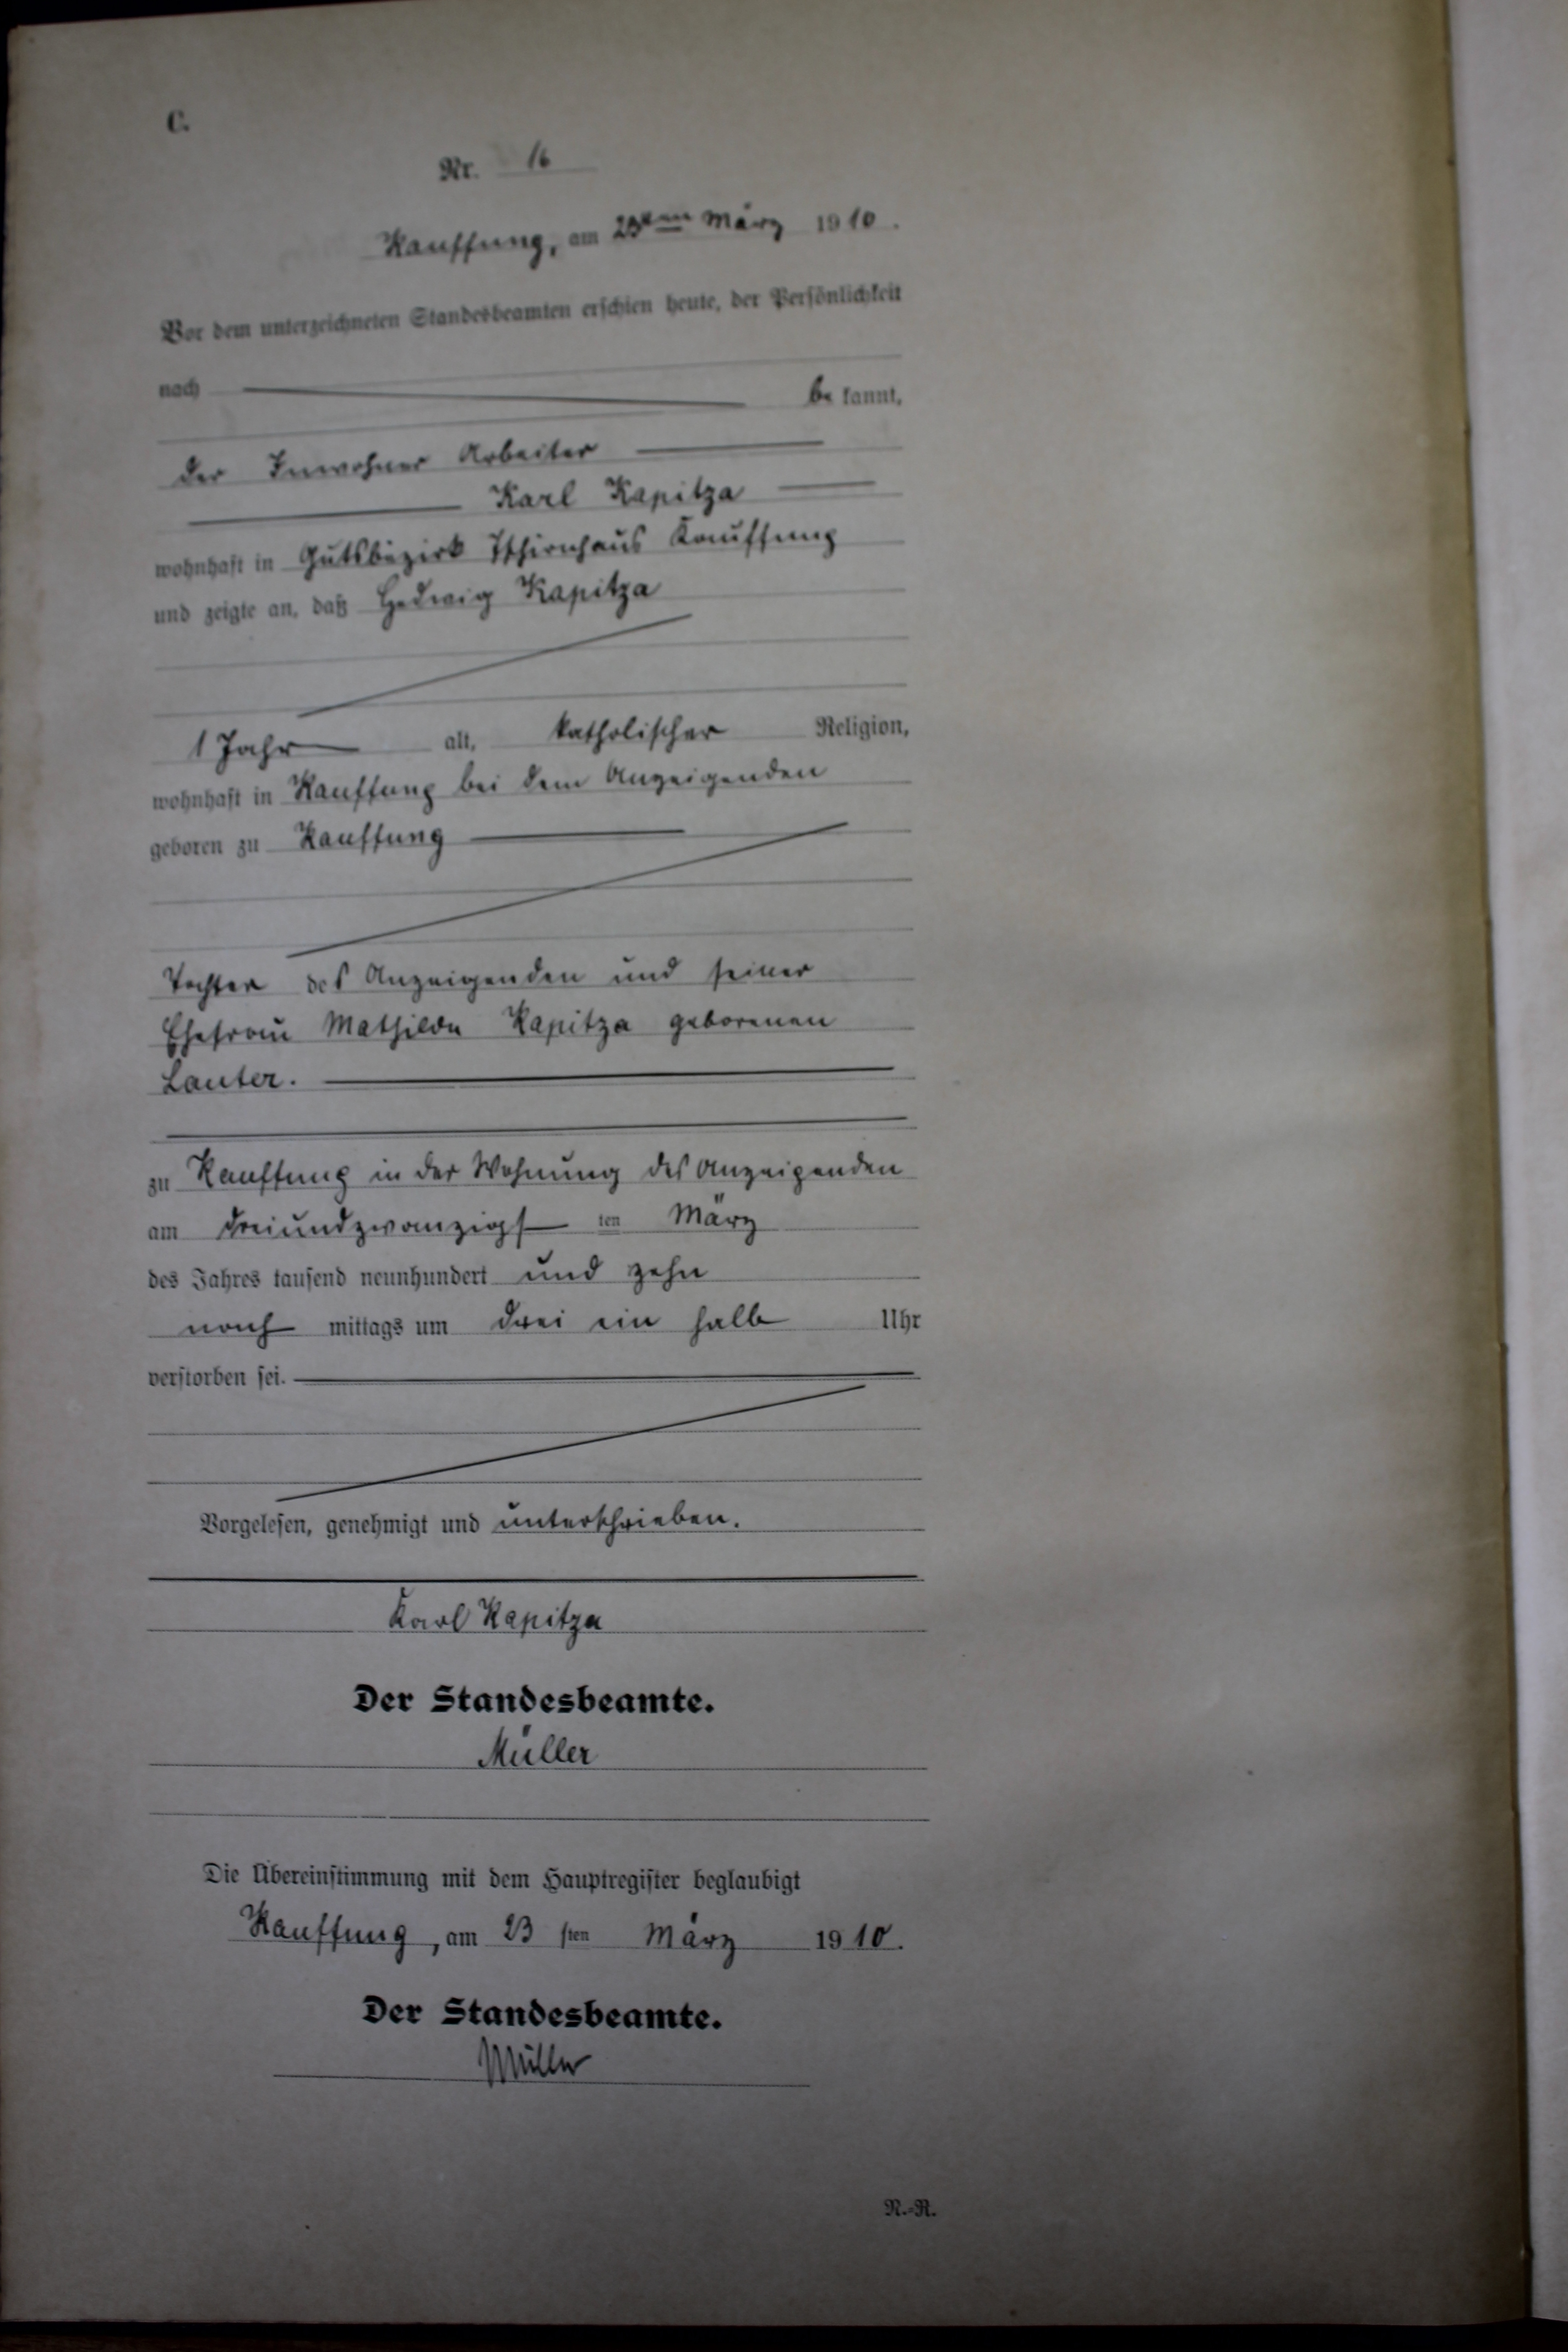 C.
Nr. 16
Kauffung, am 23ten März 1910.
Vor dem unterzeichneten Standesbeamten erschien heute, der Persönlichkeit
nach bekannt,
der Inwohner Arbeiter
Karl Kapitza
wohnhaft in Gutsbezirk Tschirnhaus Kauffung
und zeigte an, daß Hedwig Kapitza
1 Jahr alt, katholischer Religion,
wohnhaft in Kauffung bei dem Anzeigenden
geboren zu Kauffung
Tochter des Anzeigenden und seiner
Ehefrau Mathilde Kapitza geborenen
Lauter.
zu Kauffung in der Wohnung des Anzeigenden
am dreiundzwanzigsten März
des Jahres tausend neunhundert und zehn
nach mittags um drei ein halb Uhr
verstorben sei.
Vorgelesen, genehmigt und unterschrieben.
Karl Kapitza
Der Standesbeamte.
Müller
Die Übereinstimmung mit dem Hauptregister beglaubigt
Kauffung, am 23 sten März 1910.
Der Standesbeamte.
Müller
N.-R.